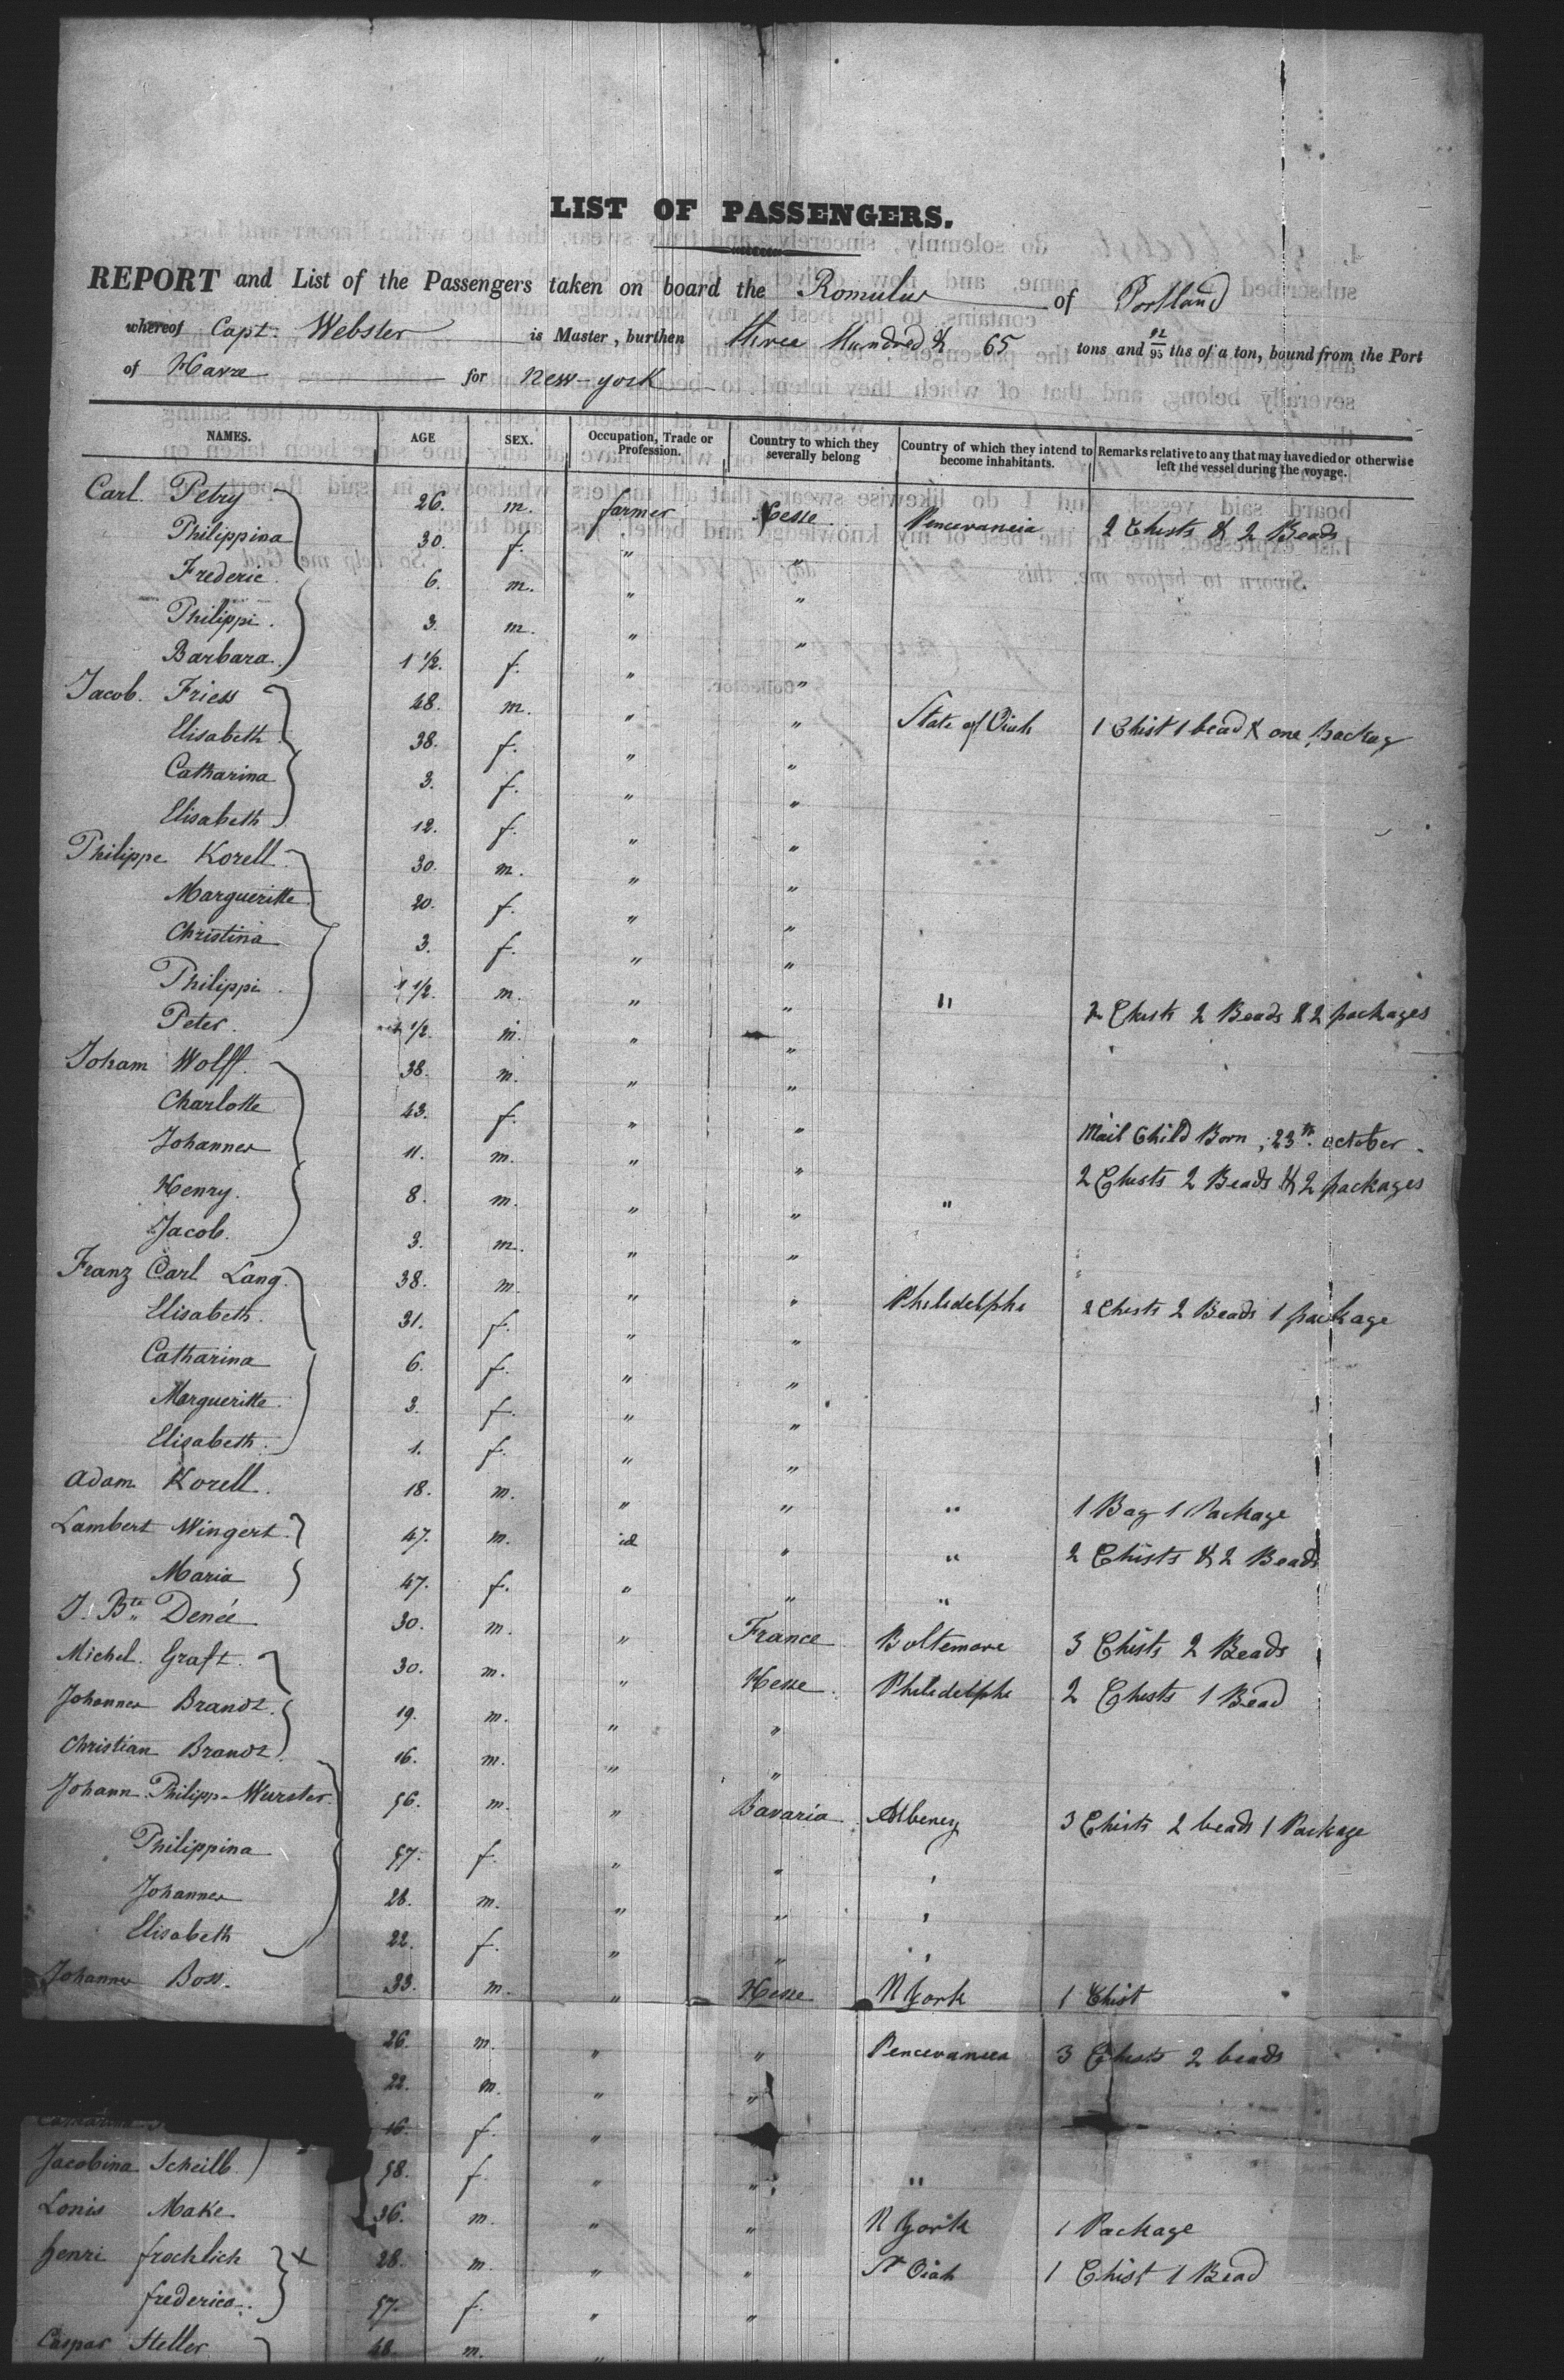 LIST OF PASSENGERS.
REPORT and List of the Passengers taken on board the Romulus of Portland
whereof Capt. Webster is Master, burthen three Hundred & 65 tons and 92/95 ths of a ton, bound from the Port
of Havre for New-york
NAMES. AGE SEX. Occupation, Trade or Profession. Country to which they severally belong Country of which they intend to become inhabitants. Remarks relative to any that may have died or otherwise left the vessel during the voyage.
Carl Petry 26. m. farmer Hesse Pencevaneia 2 Chists & 2 Beads
Philippina 30. f. " "
Frederic 6. m. " "
Philippi. 3. m. " "
Barbara 1 1/2. f. " "
Jacob. Friess 48. m. " " State of Oiah 1 Chist 1 bead & one Backag
Elisabeth 38. f. " "
Catharina 3. f. " "
Elisabeth 12. f. " "
Philippe Korell 30. m. " "
Margueritte 20. f. " "
Christina 3. f. " "
Philippi 1 1/2. m. " " " 2 Chists 2 Beads & 2 packages
Peter. 1/2. m. " "
Joham Wolff. 38. m. " "
Charlotte 43. f. " " Mail Child Born, 23th october.
Johannes 11. m. " " 2 Chists 2 Beads & 2 packages
Henry. 8. m. " " "
Jacob. 3. m. " "
Franz Carl Lang. 38. m. " " Philidelphi 2 Chists 2 Beads 1 package
Elisabeth. 31. f. " "
Catharina 6. f. " "
Margueritte. 3. f. " "
Elisabeth. 1. f. " "
Adam Korell. 18. m. " " " 1 Bag 1 Package
Lambert Wingert. 47. m. id " " 2 Chists & 2 Beads
Maria 47. f. " " "
J. Bte Denée 30. m. " France Boltemore 3 Chists 2 Beads
Michel. Graft. 30. m. " Hesse Philidelphi 2 Chists 1 Bead
Johannes Brandt. 19. m. " "
Christian Brandt. 16. m. " "
Johann Philipp Wurster. 56. m. " Bavaria Albeney 3 Chists 2 beads 1 Package
Philippina 57. f. " " "
Johannes 28. m. " " "
Elisabeth 22. f. " " "
Johannes Boss. 33. m. " Hesse N York 1 Chist
26. m. " " Pencevaneea 3 Chists 2 beads
22. m. " "
16. f. " "
Jacobina Scheilb. 58. f. " " "
Lonis Make. 36. m. " " N York 1 Package
henri frochlich 28. m. " " St Oiah 1 Chist 1 Bead
frederica. 57. f. " "
Caspar Heller 48. m. "